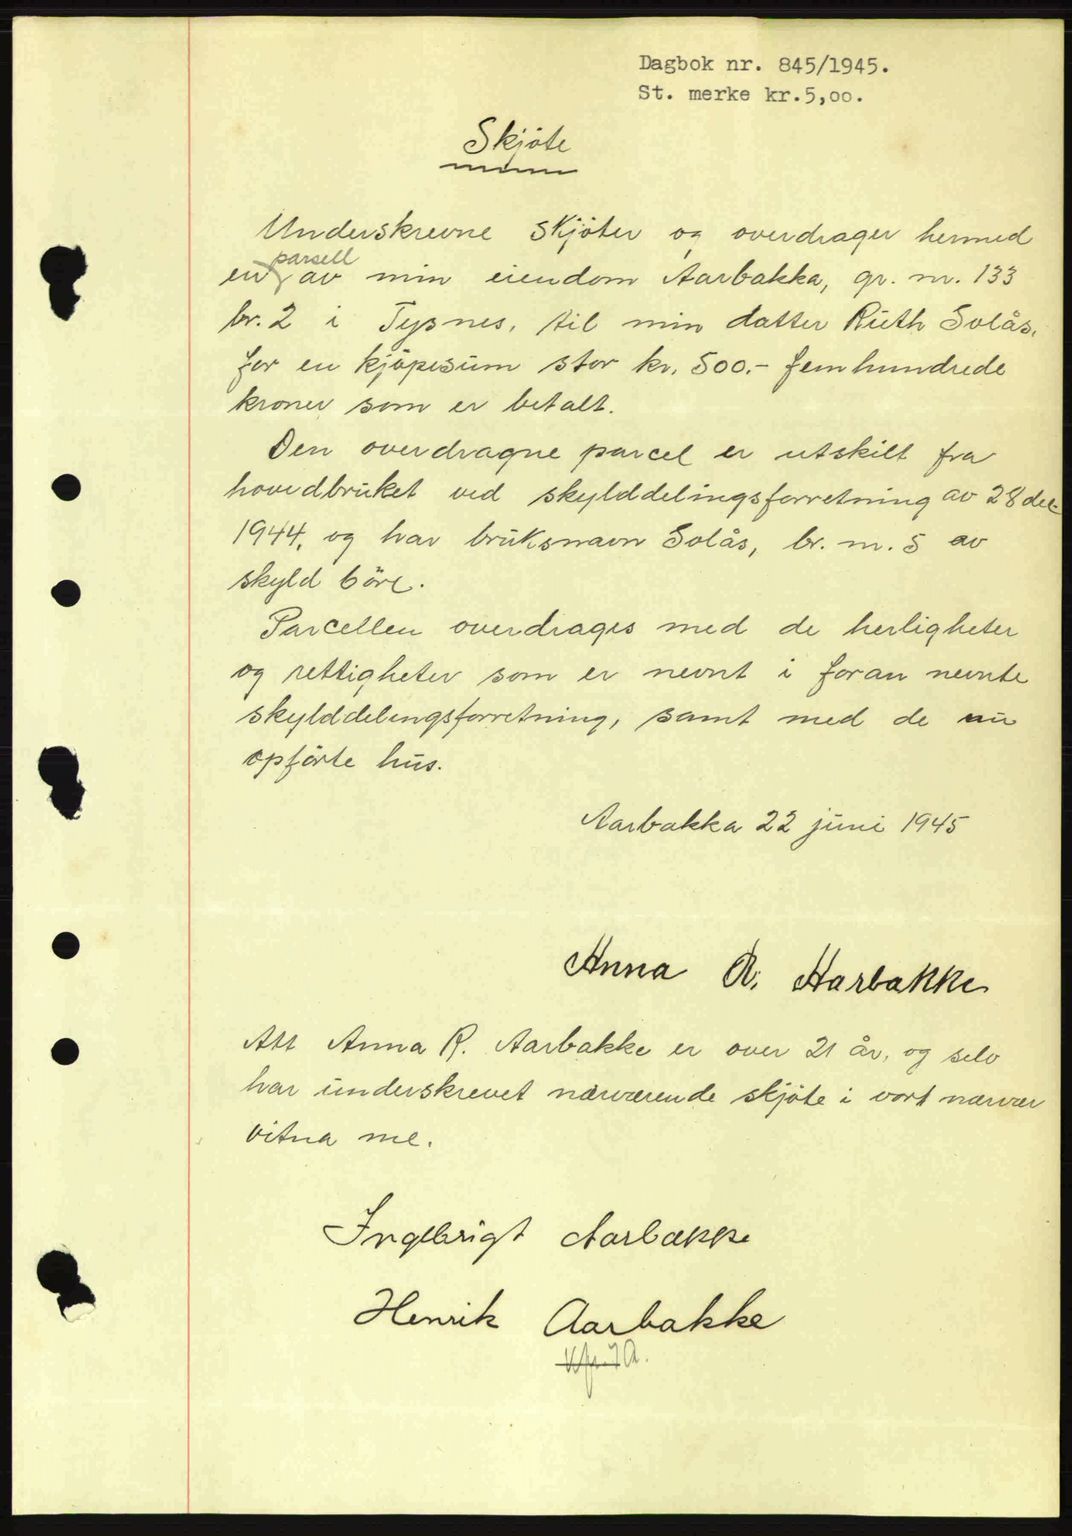 Dagbok nr. 845/1945.
St. merke kr.5,oo.
Skjöte
Underskrevne skjöter og overdrager hermed
parsell
en av min eiendom Aarbakka, gr. nr. 133
br. 2 i Tysnes, til min datter Ruth Solås,
for en kjöpesum stor kr. 500.- femhundrede
kroner som er betalt.
Den overdragne parcel er utskilt fra
hovedbruket ved skylddelingsforretning av 28 des
1944, og har bruksnavn Solås, br. nr. 5 av
skyld 6 öre.
Parcellen overdrages med de herligheter
og rettigheter som er nevnt i foran nevnte
skylddelingsforretning, samt med de nu
opförte hus.
Aarbakka 22 juni 1945
Anna R. Aarbakke
Att Anna R. Aarbakke er over 21 år, og selv
har underskrevet nærværende skjöte i vort nærvær
vitna me.
Ingebrigt Aarbakke
Henrik Aarbakke